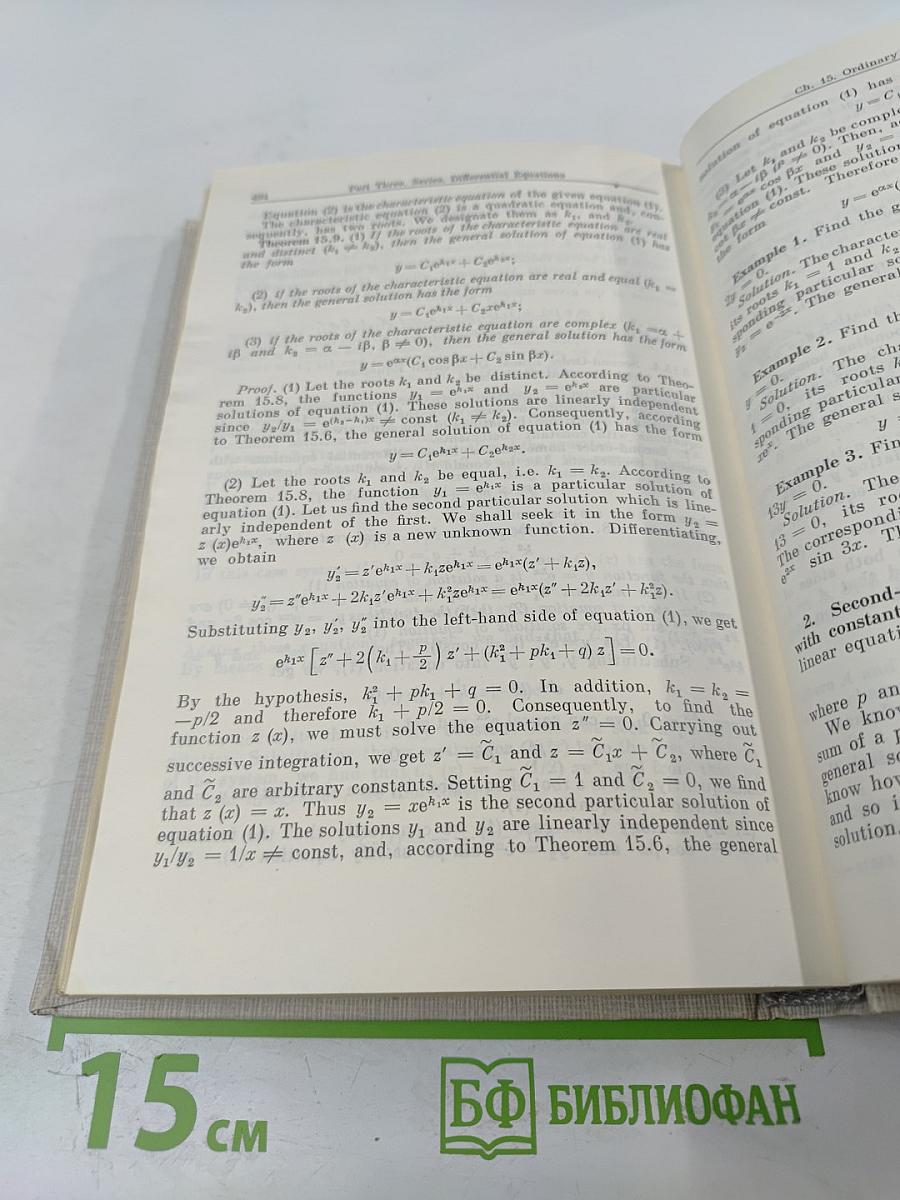 Part Three. Series. Differential Equations
Equation (2) is the characteristic equation of the given equation (1).
The characteristic equation (2) is a quadratic equation and, con-
sequently, has two roots. We designate them as k₁, and k₂.
Theorem 15.9. (1) If the roots of the characteristic equation are real
and distinct (k₁ ≠ k₂), then the general solution of equation (1) has
the form
y = C₁eᵏ¹ˣ + C₂eᵏ²ˣ;
(2) if the roots of the characteristic equation are real and equal (k₁ =
k₂), then the general solution has the form
y = C₁eᵏ¹ˣ + C₂xeᵏ¹ˣ;
(3) if the roots of the characteristic equation are complex (k₁ = α +
iβ and k₂ = α — iβ, β ≠ 0), then the general solution has the form
y = e^{αx}(C₁ cos βx + C₂ sin βx).
Proof. (1) Let the roots k₁ and k₂ be distinct. According to Theo-
rem 15.8, the functions y₁ = e^{k₁x} and y₂ = e^{k₂x} are particular
solutions of equation (1). These solutions are linearly independent
since y₂/y₁ = e^{(k₂—k₁)x} ≠ const (k₁ ≠ k₂). Consequently, according
to Theorem 15.6, the general solution of equation (1) has the form
y = C₁e^{k₁x} + C₂e^{k₂x}.
(2) Let the roots k₁ and k₂ be equal, i.e. k₁ = k₂. According to
Theorem 15.8, the function y₁ = e^{k₁x} is a particular solution of
equation (1). Let us find the second particular solution which is line-
arly independent of the first. We shall seek it in the form y₂ =
z (x)e^{k₁x}, where z (x) is a new unknown function. Differentiating,
we obtain
y₂′ = z′e^{k₁x} + k₁ze^{k₁x} = e^{k₁x}(z′ + k₁z),
y₂″ = z″e^{k₁x} + 2k₁z′e^{k₁x} + k₁²ze^{k₁x} = e^{k₁x}(z″ + 2k₁z′ + k₁²z).
Substituting y₂, y₂′, y₂″ into the left-hand side of equation (1), we get
e^{k₁x} [z″ + 2(k₁ + p/2) z′ + (k₁² + pk₁ + q) z] = 0.
By the hypothesis, k₁² + pk₁ + q = 0. In addition, k₁ = k₂ =
—p/2 and therefore k₁ + p/2 = 0. Consequently, to find the
function z (x), we must solve the equation z″ = 0. Carrying out
successive integration, we get z′ = C̃₁ and z = C̃₁x + C̃₂, where C̃₁
and C̃₂ are arbitrary constants. Setting C̃₁ = 1 and C̃₂ = 0, we find
that z (x) = x. Thus y₂ = xe^{k₁x} is the second particular solution of
equation (1). The solutions y₁ and y₂ are linearly independent since
y₁/y₂ = 1/x ≠ const, and, according to Theorem 15.6, the general
Ch. 15. Ordinary
solution of equation (1) has
y = C
(3) Let k₁ and k₂ be compl
= α — iβ (β ≠ 0). Then, a
cos βx and y₂ =
equation (1). These solution
const. Therefore
the form
y = e^{αx}(
Example 1. Find the g
2y = 0.
Solution. The character
its roots k₁ = 1 and k₂
sponding particular so
The general
Example 2. Find th
y = 0.
Solution. The cha
1 = 0, its roots k
sponding particular
xeˣ. The general s
y =
Example 3. Fin
13y = 0.
Solution. The
13 = 0, its ro
The correspondi
e^{2x} sin 3x. T
2. Second-
with constant
linear equati
where p an
We know
sum of a p
general so
know how
and so i
solution.
15 см
БФ БИБЛИОФАН